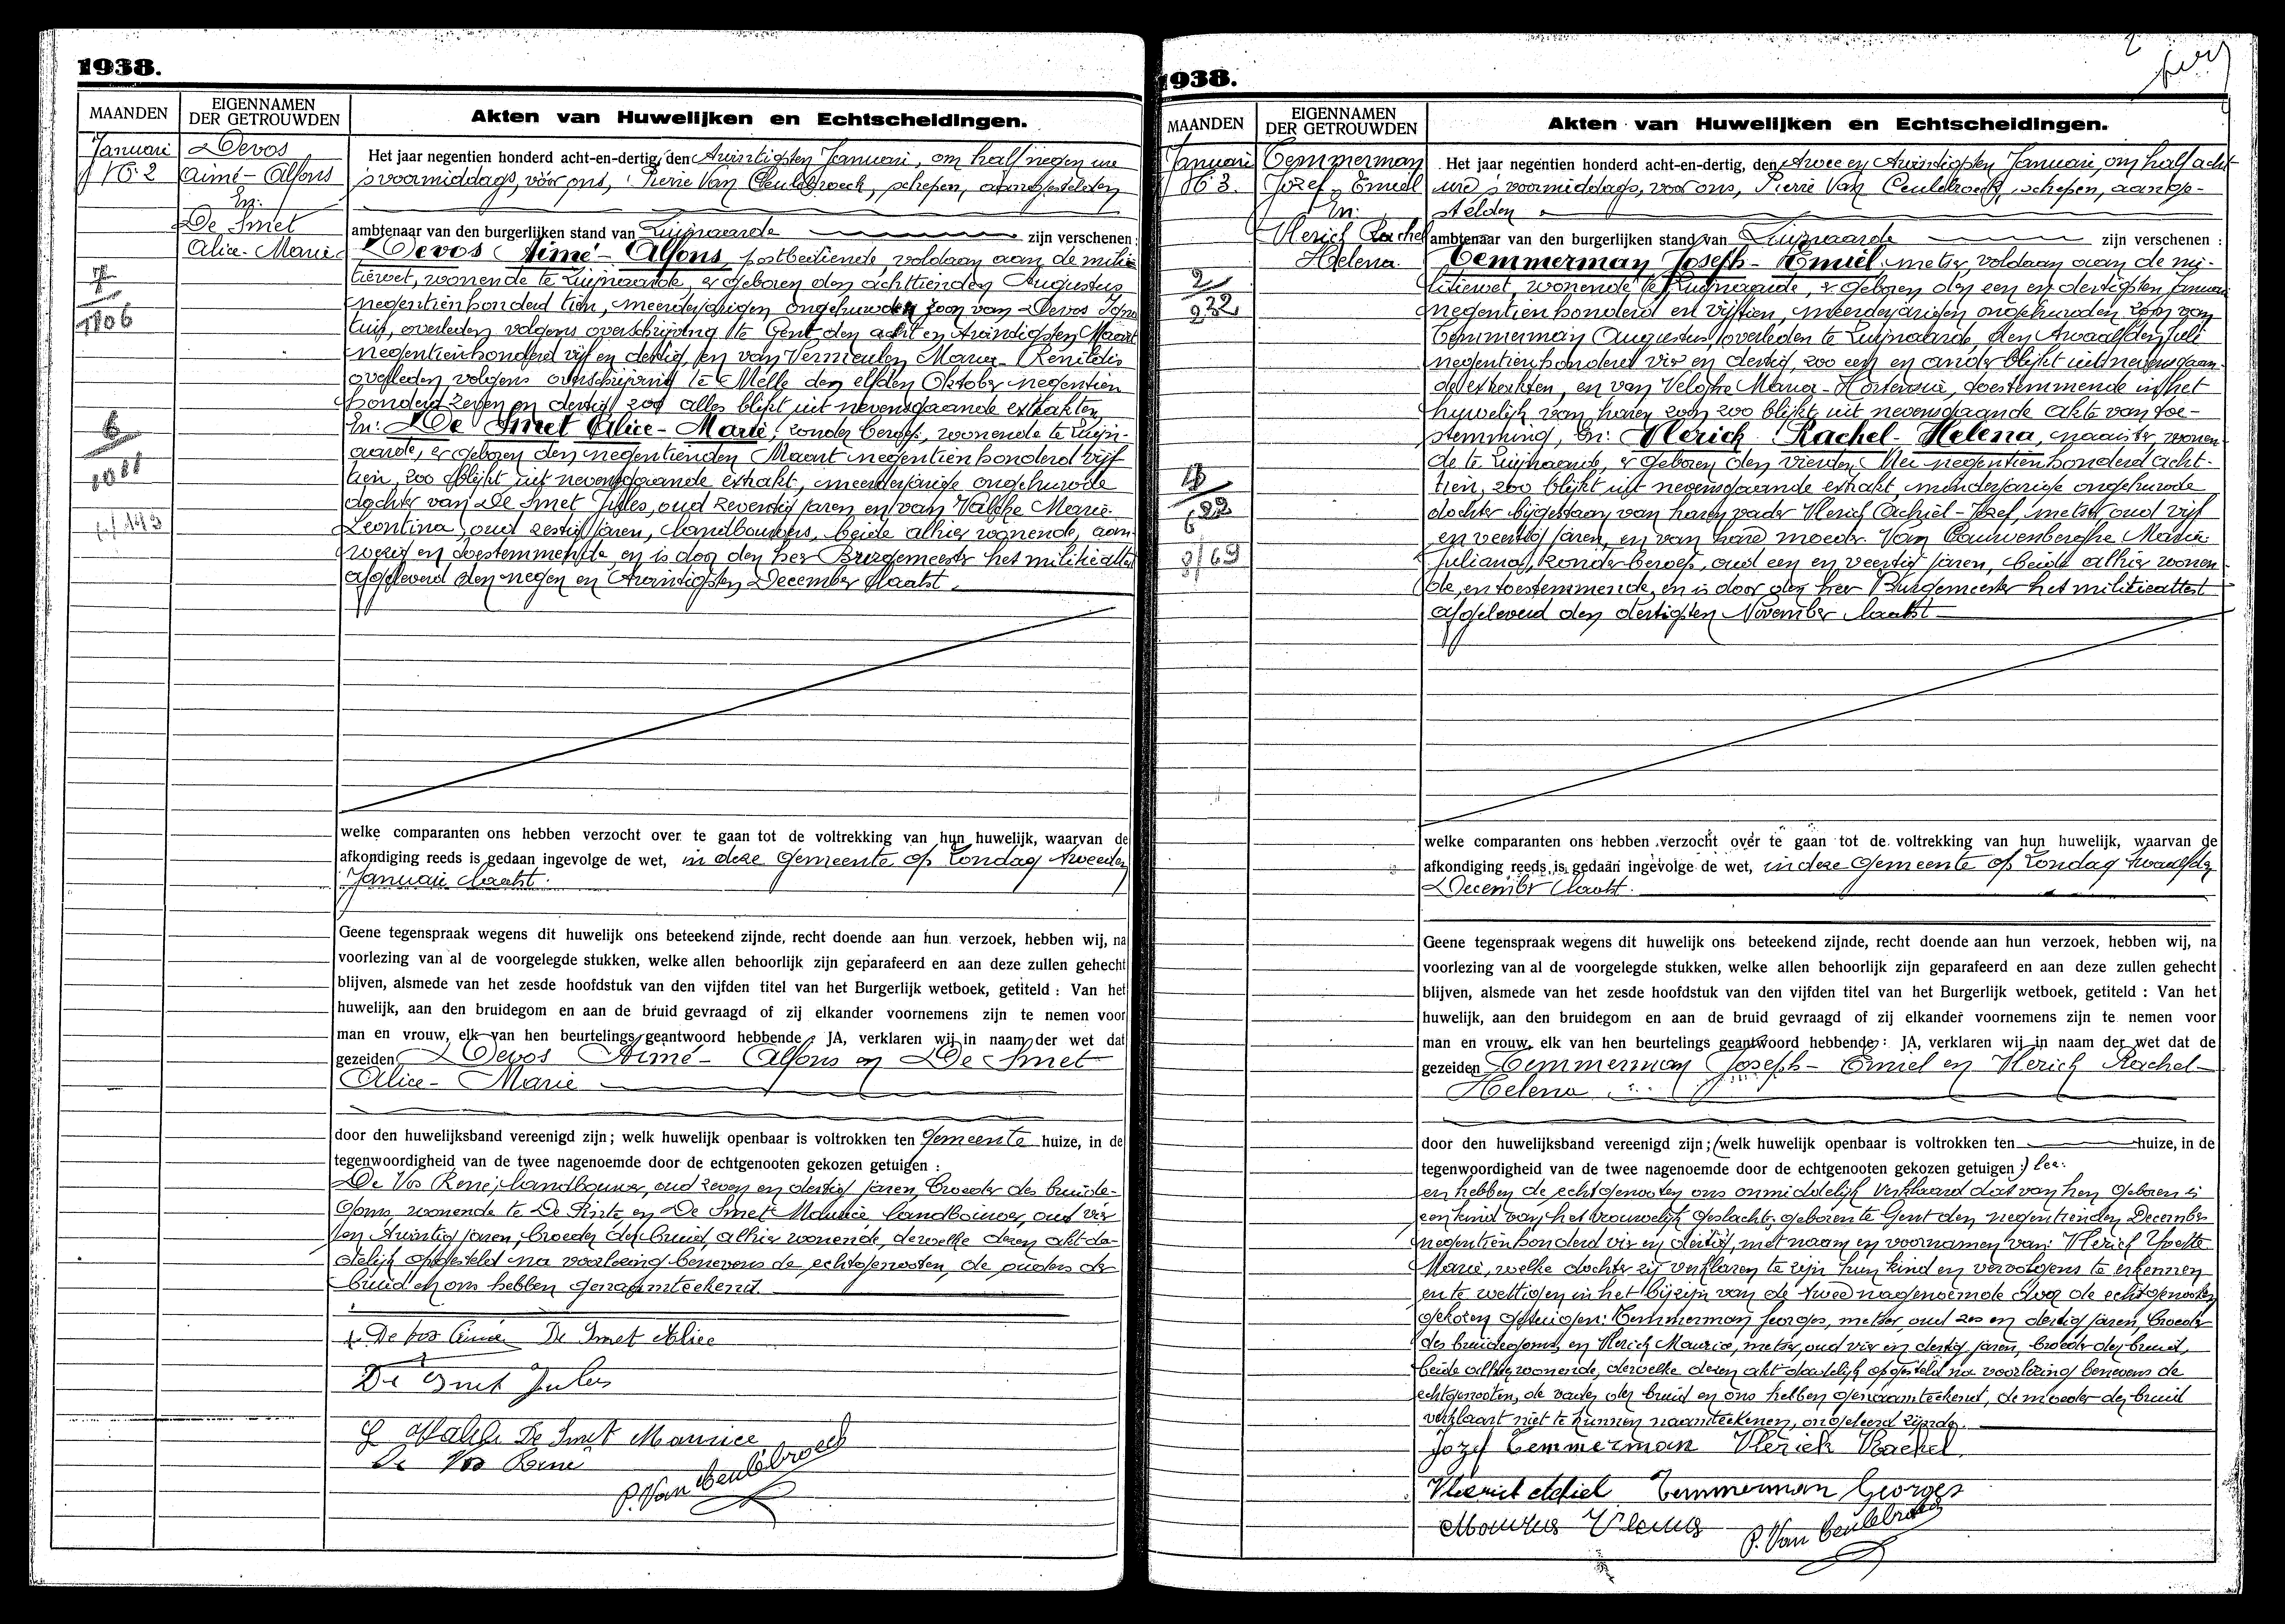 1938.
MAANDEN
EIGENNAMEN DER GETROUWDEN
Akten van Huwelijken en Echtscheidingen.
Januari
N° 2
Devos
Aimé - Alfons
En:
De Smet
Alice - Marie
7
1106
6
1011
Het jaar negentien honderd acht-en-dertig, den Twintigsten Januari, om half negen ure
's voormiddags, vóór ons, Pierre Van Ceulebroeck, schepen, aangestelden
ambtenaar van den burgerlijken stand van Zwijnaarde zijn verschenen:
Devos Aimé - Alfons, postbediende, voldaan aan de mili-
tiewet, wonende te Zwijnaarde, er geboren den achttienden Augustus
negentienhonderd tien, meerderjarigen ongehuwden zoon van Devos Igna
tius, overleden volgens overschrijving te Gent den acht en twindigsten Maart
negentienhonderd vijf en dertig, en van Vermeulen Maria - Renildis
overleden volgens overschrijving te Melle den elfden Oktober negentien
honderd zeven en dertig zoo alles blijkt uit nevensgaande extrakten,
En: De Smet Alice - Marie, zonder beroep, wonende te Zwijn-
aarde, er geboren den negentienden Maart negentienhonderd vijf
tien, zoo blijkt uit nevensgaande extrakt, meerderjarige ongehuwde
dochter van De Smet Jules, oud zeventig jaren en van Valcke Marie
Leontina, oud zestig jaren, landbouwers, beide alhier wonende, aan-
wezig en toestemmende, en is door den heer Burgemeester het militieattest
afgeleverd den negen en twintigsten December laatst.
welke comparanten ons hebben verzocht over te gaan tot de voltrekking van hun huwelijk, waarvan de
afkondiging reeds is gedaan ingevolge de wet, in deze gemeente op Zondag tweeden
Januari laatst.
Geene tegenspraak wegens dit huwelijk ons beteekend zijnde, recht doende aan hun verzoek, hebben wij, na
voorlezing van al de voorgelegde stukken, welke allen behoorlijk zijn geparafeerd en aan deze zullen gehecht
blijven, alsmede van het zesde hoofdstuk van den vijfden titel van het Burgerlijk wetboek, getiteld : Van het
huwelijk, aan den bruidegom en aan de bruid gevraagd of zij elkander voornemens zijn te nemen voor
man en vrouw, elk van hen beurtelings geantwoord hebbende, JA, verklaren wij in naam der wet dat
gezeiden Devos Aimé - Alfons en De Smet
Alice - Marie
door den huwelijksband vereenigd zijn; welk huwelijk openbaar is voltrokken ten Gemeente huize, in de
tegenwoordigheid van de twee nagenoemde door de echtgenooten gekozen getuigen :
De Vos René, landbouwer, oud zeven en dertig jaren, broeder des bruide-
goms, wonende te De Pinte en De Smet Maurice, landbouwer, oud vier
en twintig jaren, broeder der bruid, alhier wonende, derwelke dezen akt da-
delijk opgesteld na voorlezing benevens de echtgenooten, de ouders der
bruid en ons hebben genaamteekend.
De vos Aimé De Smet Alice
De Smet Jules
L Valcke De Smet Maurice
De Vos René
P. Van Ceulebroeck
1938.
MAANDEN
EIGENNAMEN DER GETROUWDEN
Akten van Huwelijken en Echtscheidingen.
Januari
N° 3.
Temmerman
Jozef - Emiel
En:
Vlerick Rachel
Helena.
2
232
Het jaar negentien honderd acht-en-dertig, den Twee en Twintigsten Januari, om half acht
ure 's voormiddags, voor ons, Pierre Van Ceulebroeck, schepen, aange-
stelden
ambtenaar van den burgerlijken stand van Zwijnaarde zijn verschenen :
Temmerman Joseph - Emiel, metser, voldaan aan de mi-
litiewet, wonende te Zwijnaarde, er geboren den een en dertigsten Januari
negentienhonderd en vijftien, meerderjarigen ongehuwden zoon van
Temmerman Augustus, overleden te Zwijnaarde, den twaalfden Juli
negentienhonderd vier en dertig, zoo een en ander blijkt uit nevensgaan-
de extrakten, en van Velghe Maria - Hortensia, toestemmende in het
huwelijk van haren zoon zoo blijkt uit nevensgaande akte van toe-
stemming, En: Vlerick Rachel - Helena, naaister, wonen-
de te Zwijnaarde, er geboren den vierden Mei negentienhonderd acht-
tien, zoo blijkt uit nevensgaande extrakt, minderjarige ongehuwde
dochter bijgestaan van haren vader Vlerick Achiel - Jozef, metser oud vijf
en veertig jaren, en van hare moeder Van Cauwenberghe Maria
Juliana, zonder beroep, oud een en veertig jaren, beide alhier wonen-
de, en toestemmende, en is door den heer Burgemeester het militieattest
afgeleverd den dertigsten November laatst
welke comparanten ons hebben verzocht over te gaan tot de voltrekking van hun huwelijk, waarvan de
afkondiging reeds is gedaan ingevolge de wet, in deze gemeente op Zondag twaalfden
December laatst.
Geene tegenspraak wegens dit huwelijk ons beteekend zijnde, recht doende aan hun verzoek, hebben wij, na
voorlezing van al de voorgelegde stukken, welke allen behoorlijk zijn geparafeerd en aan deze zullen gehecht
blijven, alsmede van het zesde hoofdstuk van den vijfden titel van het Burgerlijk wetboek, getiteld : Van het
huwelijk, aan den bruidegom en aan de bruid gevraagd of zij elkander voornemens zijn te nemen voor
man en vrouw, elk van hen beurtelings geantwoord hebbende : JA, verklaren wij in naam der wet dat de
gezeiden Temmerman Joseph - Emiel en Vlerick Rachel -
Helena
door den huwelijksband vereenigd zijn; (welk huwelijk openbaar is voltrokken ten huize, in de
tegenwoordigheid van de twee nagenoemde door de echtgenooten gekozen getuigen :)
en hebben de echtgenooten ons onmiddelijk verklaard dat van hen geboren is
een kind van het vrouwelijk geslacht, geboren te Gent den negentienden December
negentienhonderd vier en dertig, met naam en voornamen van: Vlerick Yvette
Marie, welke dochter zij verklaren te zijn hun kind en vervolgens te erkennen
en te wettigen in het bijzijn van de twee nagenoemde door de echtgenooten
gekozen getuigen: Temmerman Georges, metser oud zes en dertig jaren, broeder
des bruidegoms, en Vlerick Maurice, metser, oud vier en dertig jaren, broeder der bruid,
beide alhier wonende, derwelke dezen akt dadelijk opgesteld na voorlezing benevens de
echtgenooten, de vader der bruid en ons hebben genaamteekend, de moeder der bruid
verklaart niet te kunnen naamteekenen, ongeleerd zijnde.
Jozef Temmerman Vlerick Rachel
Vlerick Achiel Temmerman Georges
P. Van Ceulebroeck